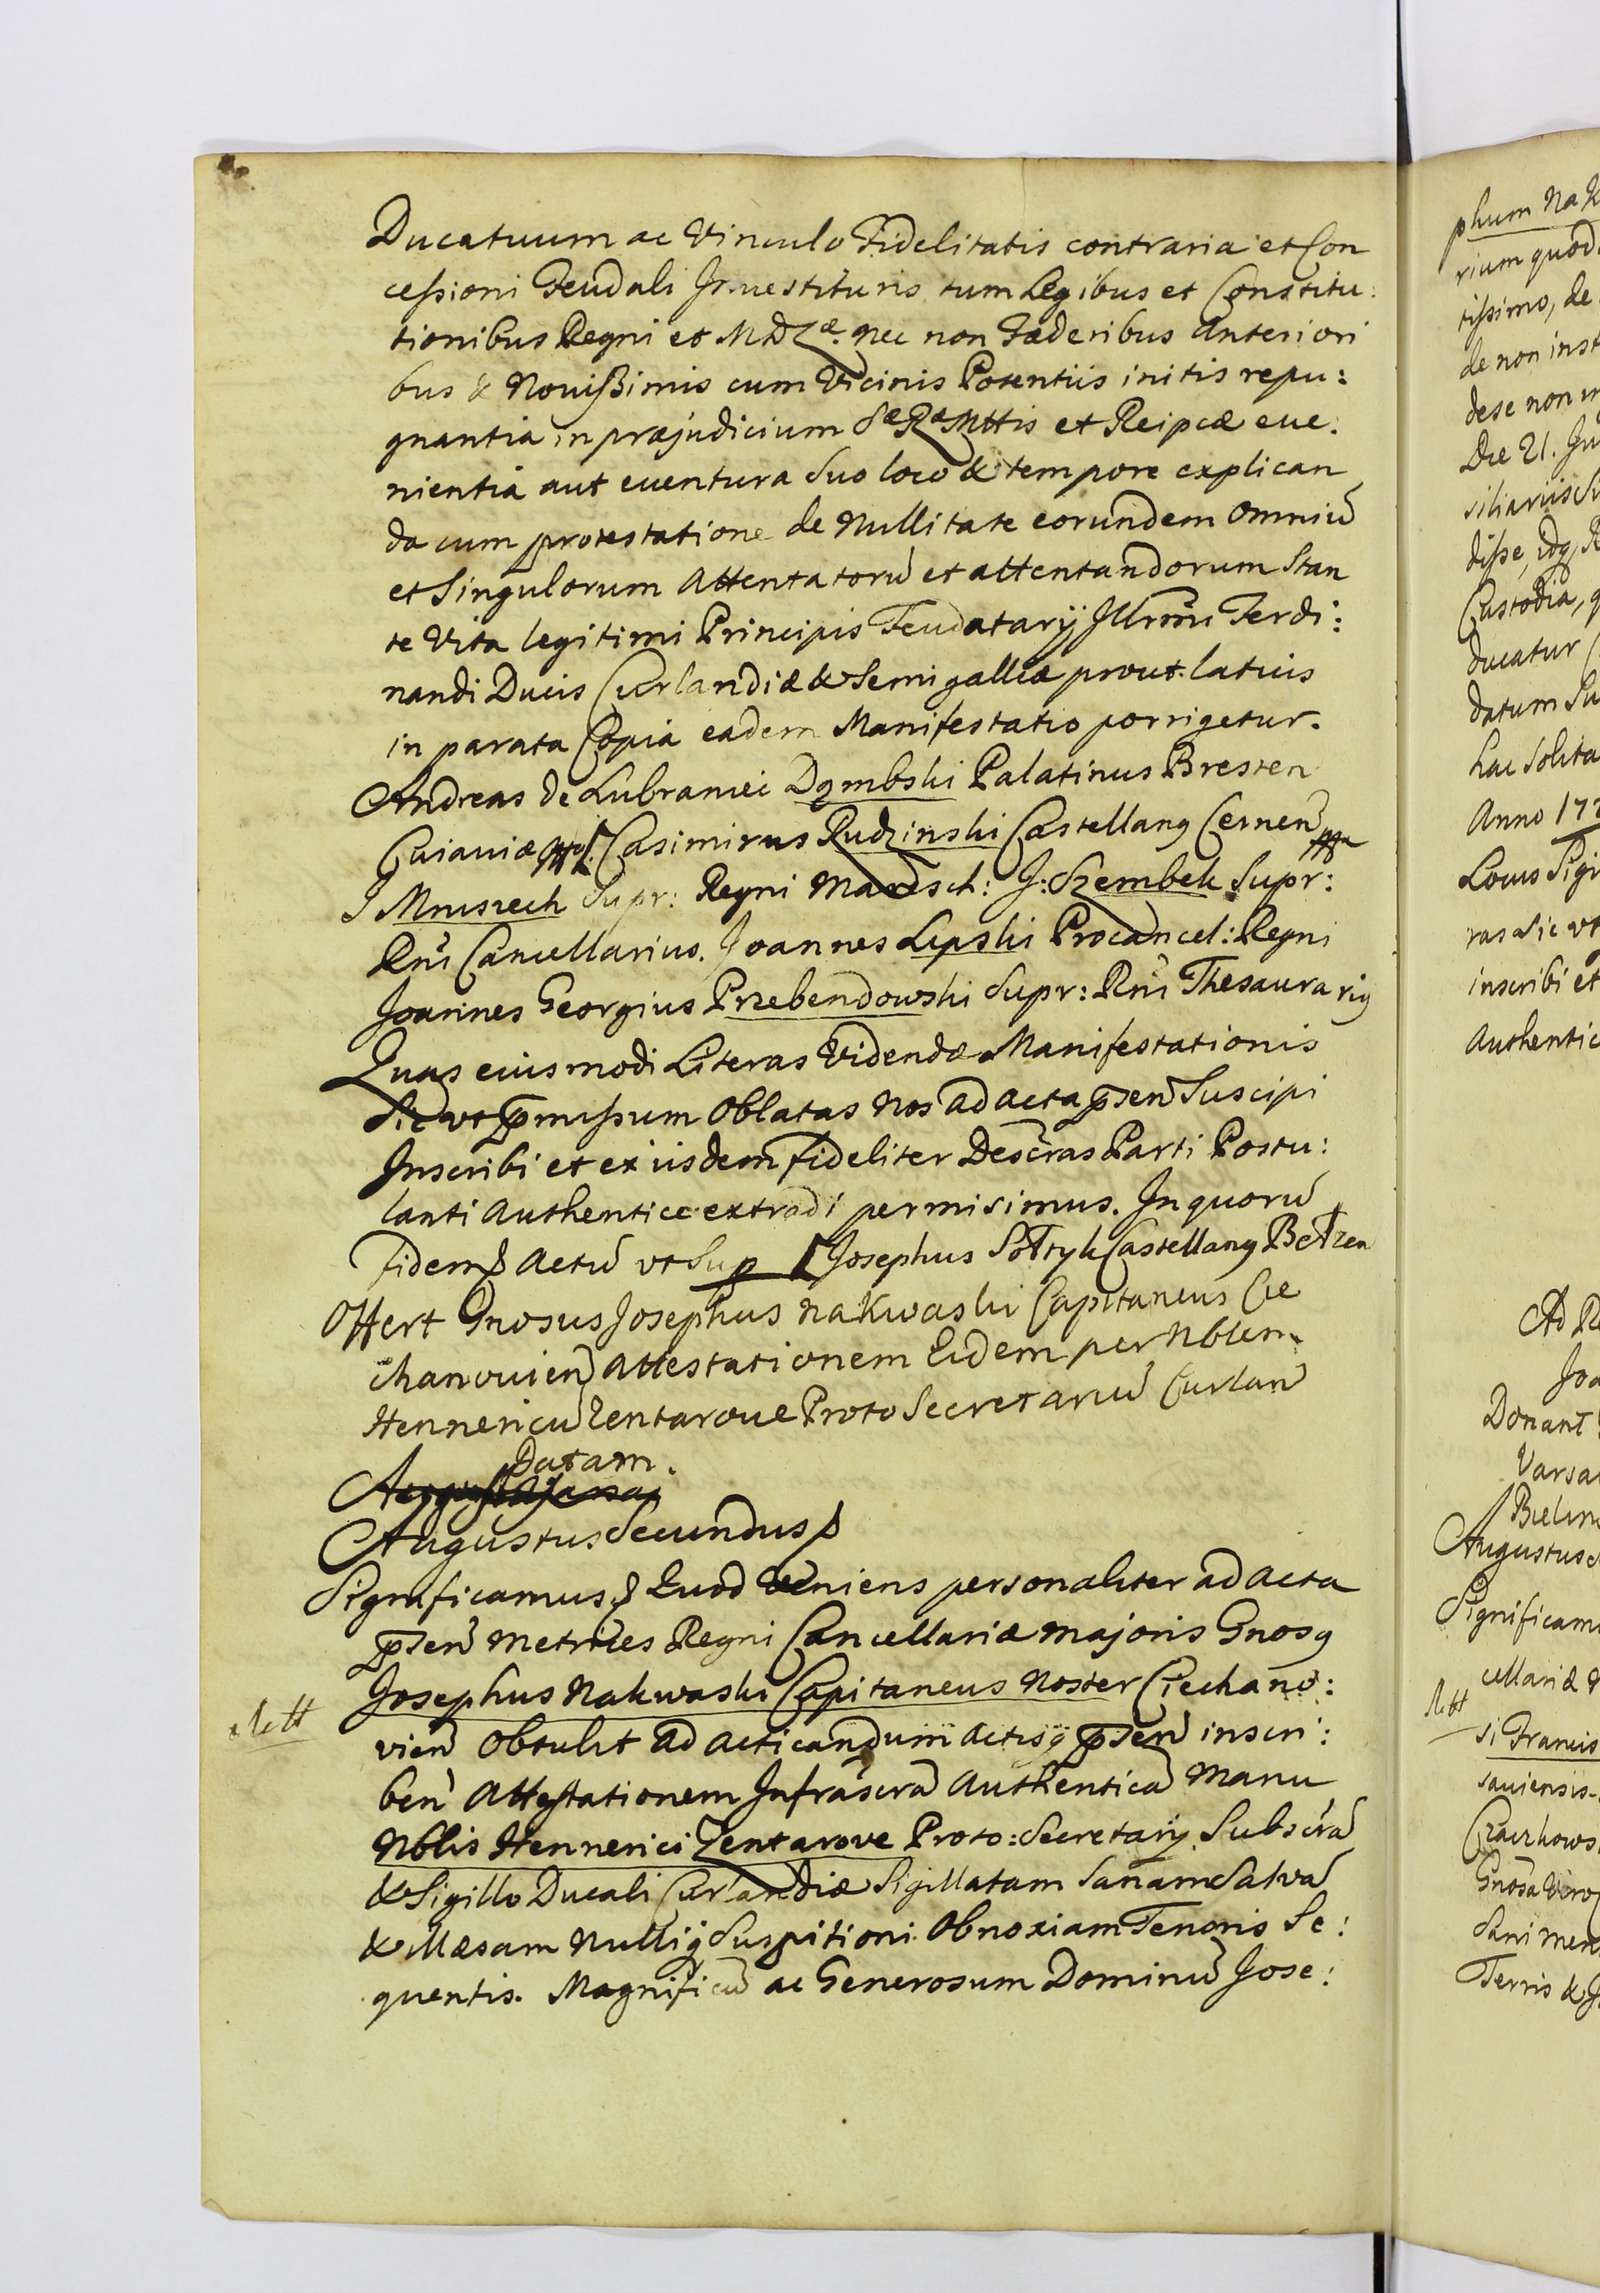 Ducatuum ac Vinculo Fidelitatis contraria et Con
cessioni Feudali Inuestituris tum Legibus et Constitu:
tionibus Regni et MDLæ. nec non Fæderibus Anteriori
bus & Nouissimis cum Vicinis Potentiis initis repu:
gnantia in præjudicium SæRæMttis et Reipcæ eue:
nientia aut euentura suo loco & tempore explican
da cum protestatione de Nullitate eorundem omniū
et Singulorum Attentatorū et attentandorum Stan
te Vita legitimi Principis Feudatarÿ Illrmi Ferdi:
nandi Ducis Curlandiæ & Semigalliæ prout latius
in parata Copia eadem Manifestatio porrigetur.
Andreas de Lubraniei Dąmbski Palatinus Bresten
Cuiauiæ Casimirus Rudzinski Castellanq Cernen
J Mniszech Supr: Regni Maresch: J: Szembek Supr:
Rni Cancellarius. Joannes Lipski Procancel: Regni
Joannes Georgius Przebendowski Supr: Rni Thesaurariq
Quas eiusmodi Literas Videndæ Manifestationis
Sic vt pmissum Oblatas Nos ad acta psen Suscipi
Inscribi et ex iisdem fideliter Descras Parti Postu:
lanti Authentice extradi permisimus. In quorū
fidem Actū vt Sup Josephus Sołtyk Castellanq Bełzen
Offert Gnosus Josephus Nakwaski Capitaneus Cie
chanouien Attestationem Eidem per Nblem
Hennericū Zentaroue Proto Secretariū Curlan
Datam.
Augustus Secundus
Significamus Quod Veniens personaliter ad acta
psen Metrices Regni Cancellariæ Majoris Gnosq
Josephus Nakwaski Capitaneus Noster Ciechano:
vien Obtulit ad acticandum actisq psen inscri:
ben Attestationem Infrascrā Authenticā Manu
Nblis Hennerici Zentarove Proto: Secretarÿ Subscrā
& Sigillo Ducali Curlandiæ Sigillatam Sanam Salvā
& Illæsam Nulliq Suspitioni Obnoxiam Tenoris Se:
quentis. Magnificū ac Generosum Dominū Jose:
phum Nak
rium quod
tissimo, de
de non inst
dese non
Die 21. Ju
siliariis
disse, idq
Custodia,
ducatur
datum
hac solita
Anno 17
Locus Sigi
ras sic vt
inscribi et
Authentic
Ad
Joa
Donant
Varsa
Bielin
Augustus
Significam
cellariæ
si Francis
saviensis
Gnosa
Terris &